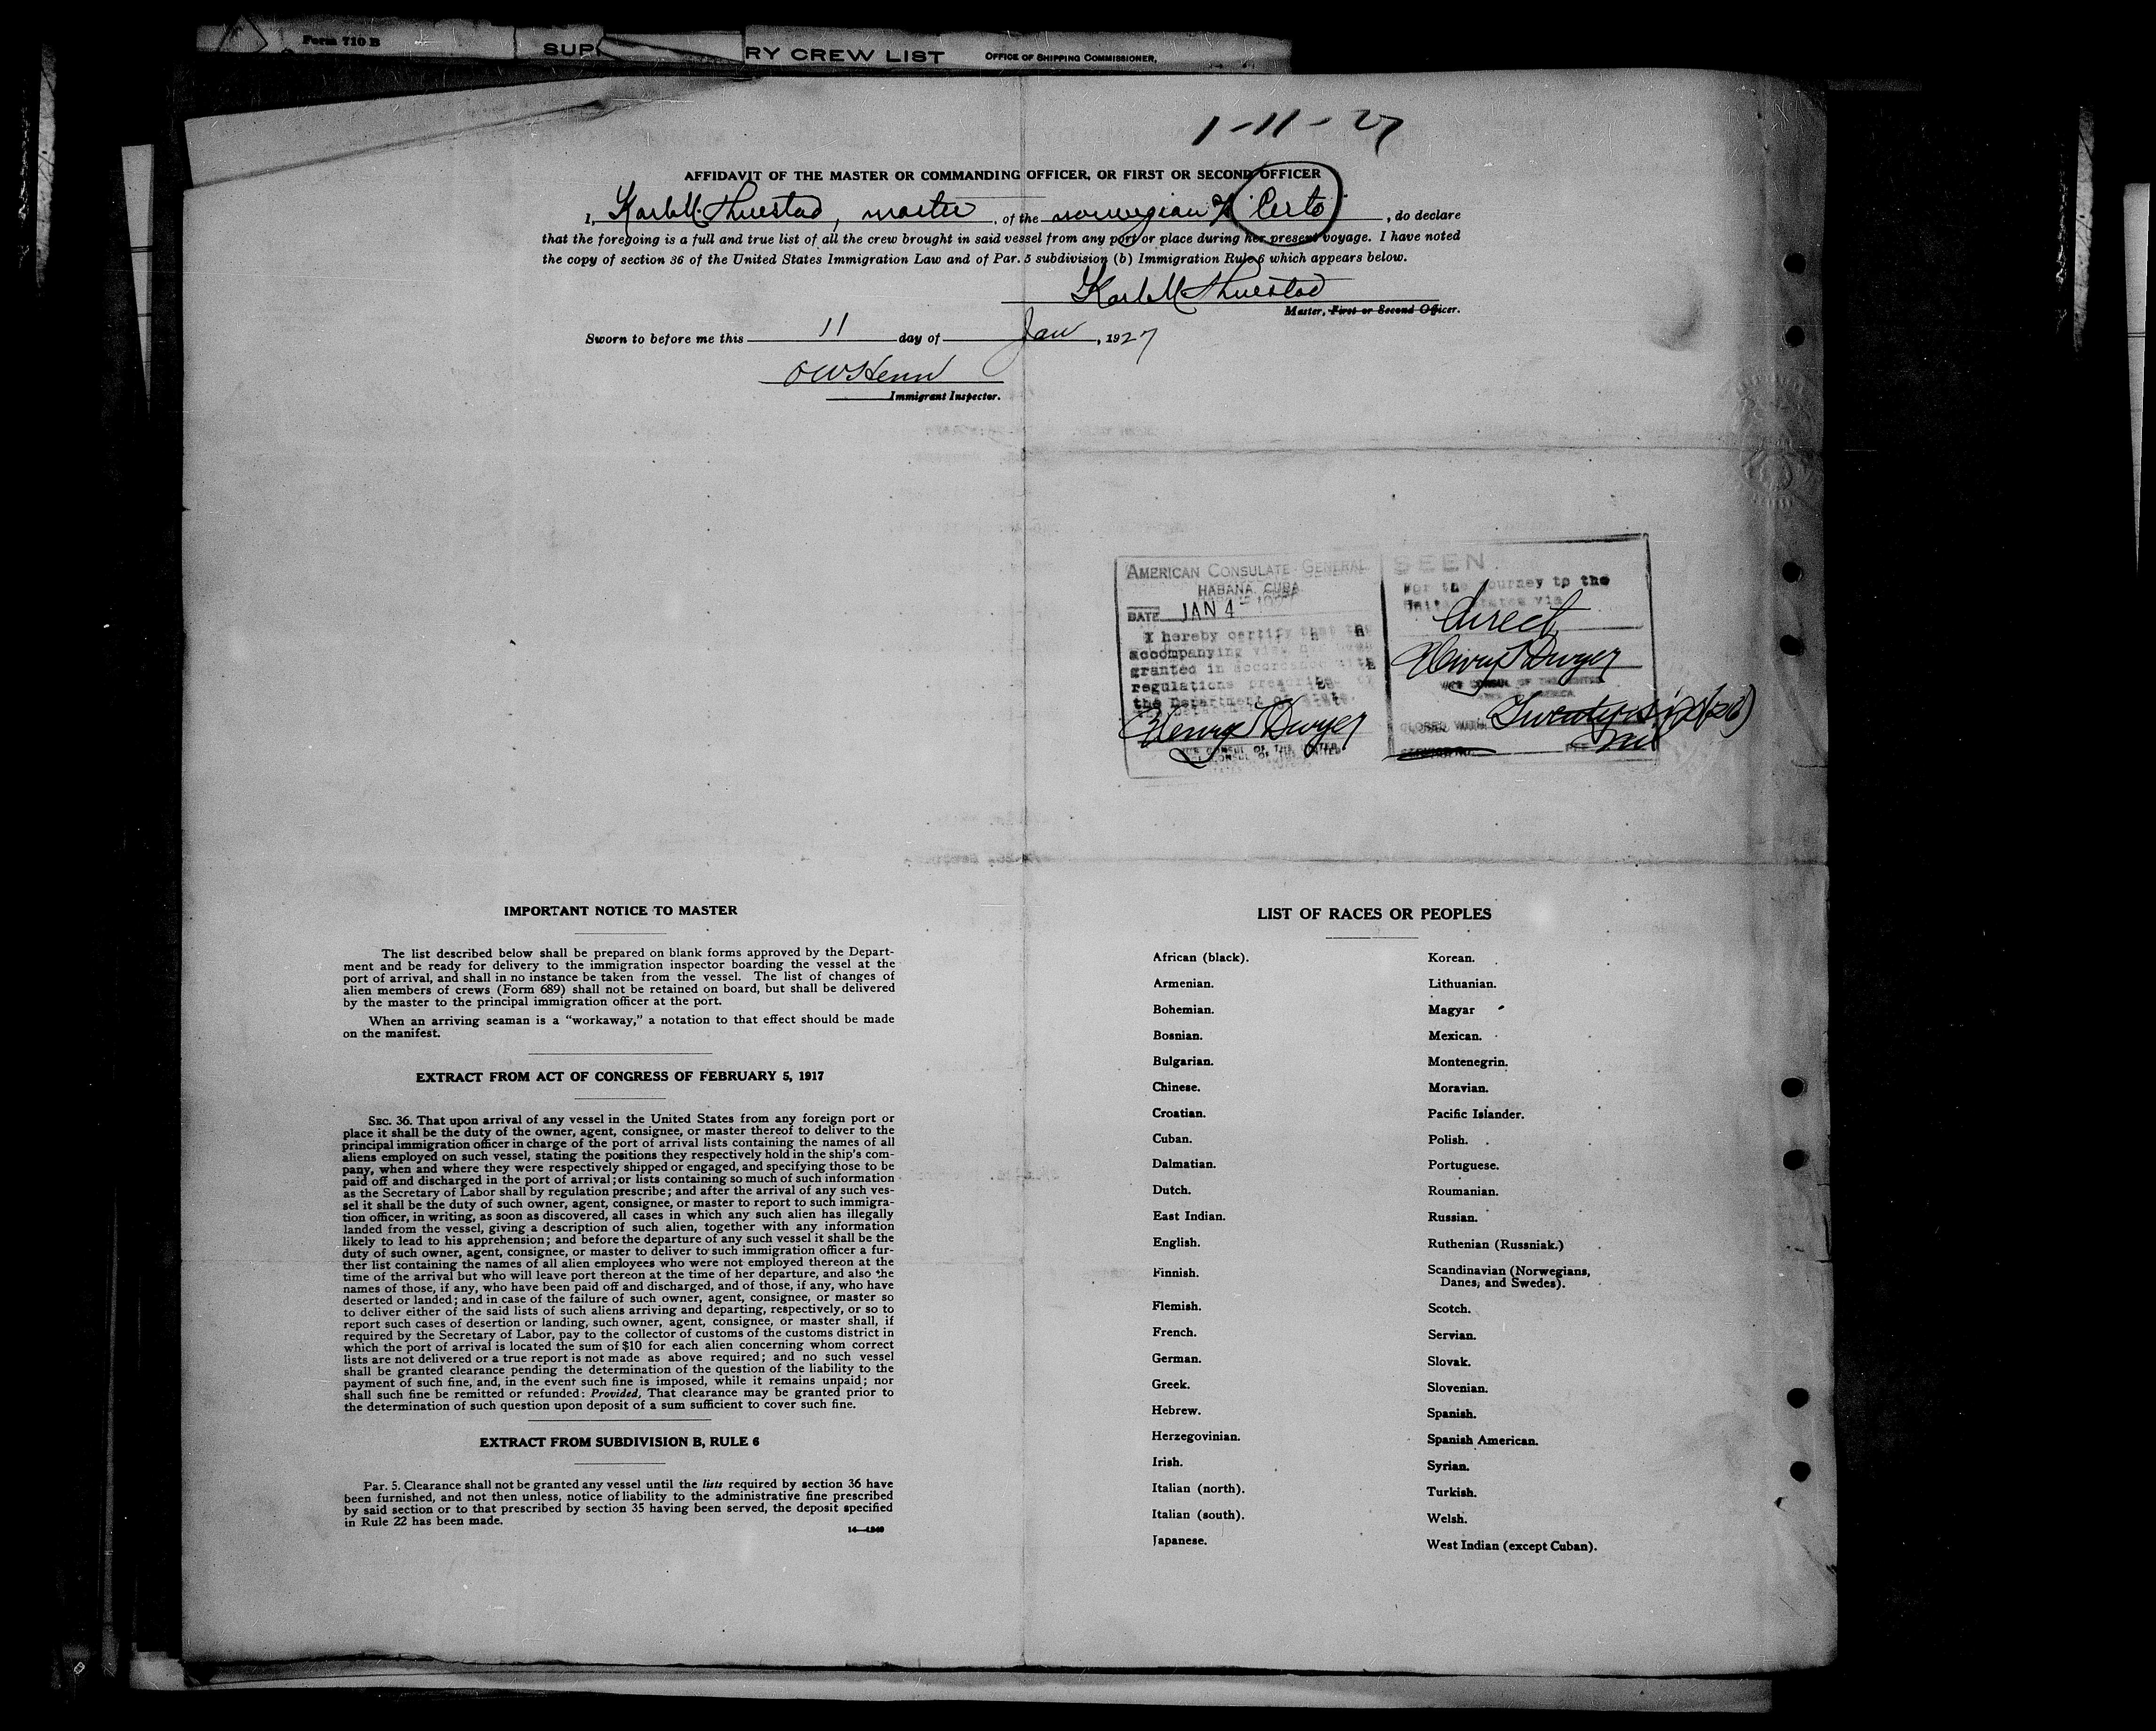 Form 710 B
RY CREW LIST
OFFICE OF SHIPPING COMMISSIONER,
1-11-27
AFFIDAVIT OF THE MASTER OR COMMANDING OFFICER, OR FIRST OR SECOND OFFICER
I, Karl M. Thuestad, master, of the norwegian S/S "Certo", do declare
that the foregoing is a full and true list of all the crew brought in said vessel from any port or place during her present voyage. I have noted
the copy of section 36 of the United States Immigration Law and of Par. 5 subdivision (b) Immigration Rule 6 which appears below.
Karl M Thuestad
Master, First or Second Officer.
Sworn to before me this 11 day of Jan, 1927
O W Henn
Immigrant Inspector.
AMERICAN CONSULATE GENERAL
HABANA, CUBA
DATE JAN 4 - 1927
I hereby certify that the
accompanying visa has been
granted in accordance with
regulations prescribed by
the Department of State.
Henry T Dwyer
VICE CONSUL OF THE UNITED
SEEN
For the journey to the
United States via
direct
Henry T Dwyer
VICE CONSUL OF THE UNITED
STATES OF AMERICA
CLOSED WITH Twenty six (26)
FEE
IMPORTANT NOTICE TO MASTER
The list described below shall be prepared on blank forms approved by the Depart-
ment and be ready for delivery to the immigration inspector boarding the vessel at the
port of arrival, and shall in no instance be taken from the vessel. The list of changes of
alien members of crews (Form 689) shall not be retained on board, but shall be delivered
by the master to the principal immigration officer at the port.
When an arriving seaman is a "workaway," a notation to that effect should be made
on the manifest.
EXTRACT FROM ACT OF CONGRESS OF FEBRUARY 5, 1917
SEC. 36. That upon arrival of any vessel in the United States from any foreign port or
place it shall be the duty of the owner, agent, consignee, or master thereof to deliver to the
principal immigration officer in charge of the port of arrival lists containing the names of all
aliens employed on such vessel, stating the positions they respectively hold in the ship's com-
pany, when and where they were respectively shipped or engaged, and specifying those to be
paid off and discharged in the port of arrival; or lists containing so much of such information
as the Secretary of Labor shall by regulation prescribe; and after the arrival of any such ves-
sel it shall be the duty of such owner, agent, consignee, or master to report to such immigra-
tion officer, in writing, as soon as discovered, all cases in which any such alien has illegally
landed from the vessel, giving a description of such alien, together with any information
likely to lead to his apprehension; and before the departure of any such vessel it shall be the
duty of such owner, agent, consignee, or master to deliver to such immigration officer a fur-
ther list containing the names of all alien employees who were not employed thereon at the
time of the arrival but who will leave port thereon at the time of her departure, and also the
names of those, if any, who have been paid off and discharged, and of those, if any, who have
deserted or landed; and in case of the failure of such owner, agent, consignee, or master so
to deliver either of the said lists of such aliens arriving and departing, respectively, or so to
report such cases of desertion or landing, such owner, agent, consignee, or master shall, if
required by the Secretary of Labor, pay to the collector of customs of the customs district in
which the port of arrival is located the sum of $10 for each alien concerning whom correct
lists are not delivered or a true report is not made as above required; and no such vessel
shall be granted clearance pending the determination of the question of the liability to the
payment of such fine, and, in the event such fine is imposed, while it remains unpaid; nor
shall such fine be remitted or refunded: Provided, That clearance may be granted prior to
the determination of such question upon deposit of a sum sufficient to cover such fine.
EXTRACT FROM SUBDIVISION B, RULE 6
Par. 5. Clearance shall not be granted any vessel until the lists required by section 36 have
been furnished, and not then unless, notice of liability to the administrative fine prescribed
by said section or to that prescribed by section 35 having been served, the deposit specified
in Rule 22 has been made.
LIST OF RACES OR PEOPLES
African (black).
Armenian.
Bohemian.
Bosnian.
Bulgarian.
Chinese.
Croatian.
Cuban.
Dalmatian.
Dutch.
East Indian.
English.
Finnish.
Flemish.
French.
German.
Greek.
Hebrew.
Herzegovinian.
Irish.
Italian (north).
Italian (south).
Japanese.
Korean.
Lithuanian.
Magyar
Mexican.
Montenegrin.
Moravian.
Pacific Islander.
Polish.
Portuguese.
Roumanian.
Russian.
Ruthenian (Russniak.)
Scandinavian (Norwegians,
Danes, and Swedes).
Scotch.
Servian.
Slovak.
Slovenian.
Spanish.
Spanish American.
Syrian.
Turkish.
Welsh.
West Indian (except Cuban).